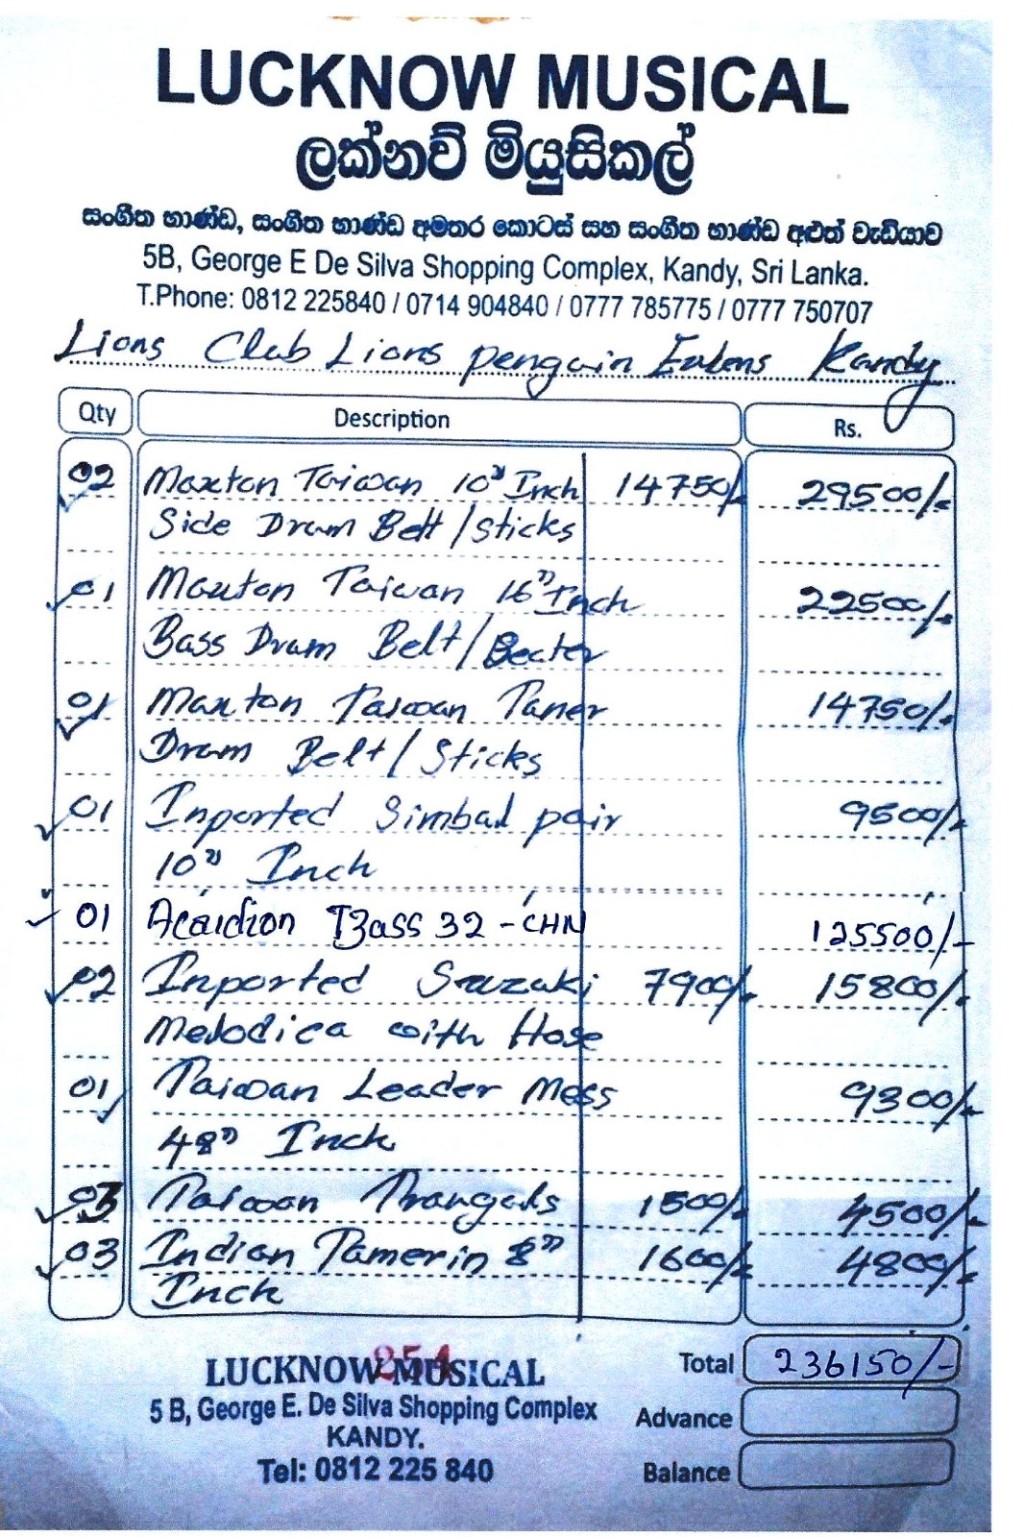 LUCKNOW MUSICAL
ලක්නව් මියුසිකල්
සංගීත භාණ්ඩ, සංගීත භාණ්ඩ අමතර කොටස් සහ සංගීත භාණ්ඩ අළුත් වැඩියාව
5B, George E De Silva Shopping Complex, Kandy, Sri Lanka.
T.Phone: 0812 225840 / 0714 904840 / 0777 785775 / 0777 750707
Lions Club Lions penguin Kandy
Qty Description Rs.
02 Maxton Taiwan 10" Inch 14750/- 29500/-
Side Drum Belt / Sticks
01 Maxton Taiwan 16" Inch 22500/-
Bass Drum Belt / Beater
01 Maxton Taiwan Taner 14750/-
Drum Belt / Sticks
01 Inported Simbal pair 9500/-
10" Inch
01 Acaidion Bass 32 - CHN 125500/-
02 Inported Suzuki 7900/- 15800/-
Melodica with Hose
01 Taiwan Leader Mess 9300/-
48" Inch
03 Taiwan Thangals 1500/- 4500/-
03 Indian Tamerin 8" 1600/- 4800/-
Inch
254
LUCKNOW MUSICAL
5 B, George E. De Silva Shopping Complex
KANDY.
Tel: 0812 225 840
Total 236150/-
Advance
Balance